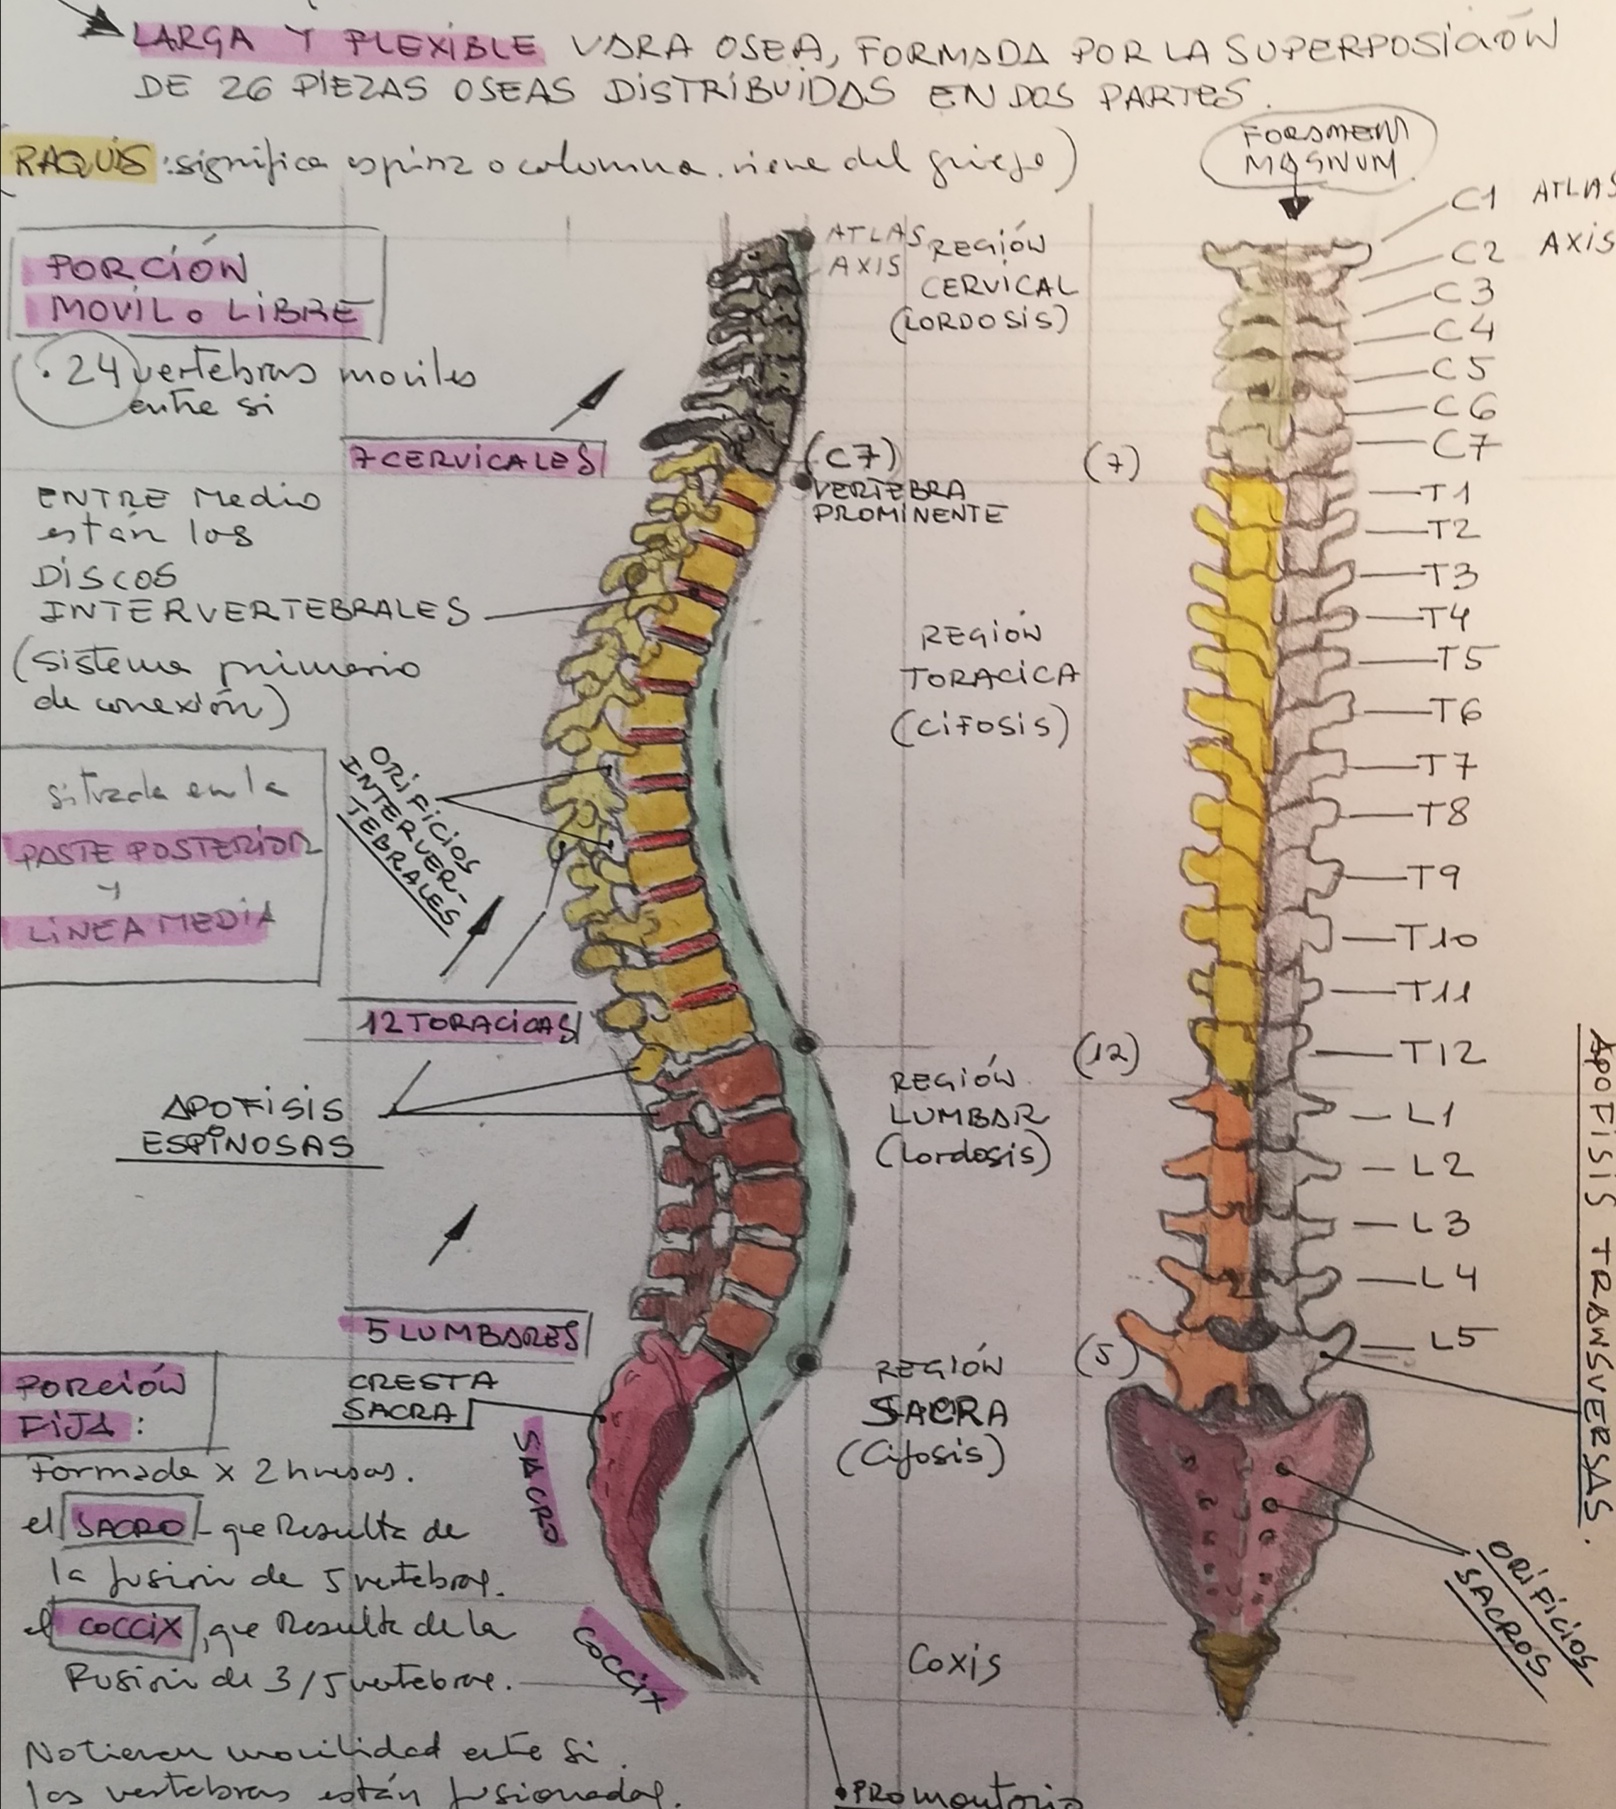 LARGA Y FLEXIBLE VARA OSEA, FORMADA POR LA SUPERPOSICIÓN
DE 26 PIEZAS OSEAS DISTRIBUIDAS EN DOS PARTES.
(RAQUIS: significa espina o columna. viene del griego)
FORAMEN
MAGNUM
PORCIÓN
MOVIL o LIBRE
. 24 vertebras moviles
entre si
7 CERVICALES
ENTRE medio
están los
DISCOS
INTERVERTEBRALES
(sistema primario
de conexión)
situada en la
PARTE POSTERIOR
y
LINEA MEDIA
ORIFICIOS
INTERVER-
TEBRALES
12 TORACICAS
APOFISIS
ESPINOSAS
5 LUMBARES
PORCIÓN
FIJA:
Formada x 2 huesos.
el SACRO - que Resulta de
la fusión de 5 vertebras.
el COCCIX, que Resulta de la
Fusión de 3/5 vertebras.
No tienen movilidad entre si.
las vertebras están fusionadas.
CRESTA
SACRA
SACRO
COCCIX
ATLAS
AXIS
REGIÓN
CERVICAL
(LORDOSIS)
(C7)
VERTEBRA
PROMINENTE
REGIÓN
TORACICA
(CIFOSIS)
REGIÓN
LUMBAR
(Lordosis)
REGIÓN
SACRA
(Cifosis)
Coxis
PROmontorio
C1 ATLAS
C2 AXIS
C3
C4
C5
C6
C7
(7)
T1
T2
T3
T4
T5
T6
T7
T8
T9
T10
T11
T12
(12)
L1
L2
L3
L4
L5
(5)
APOFISIS TRANSVERSAS.
ORIFICIOS
SACROS